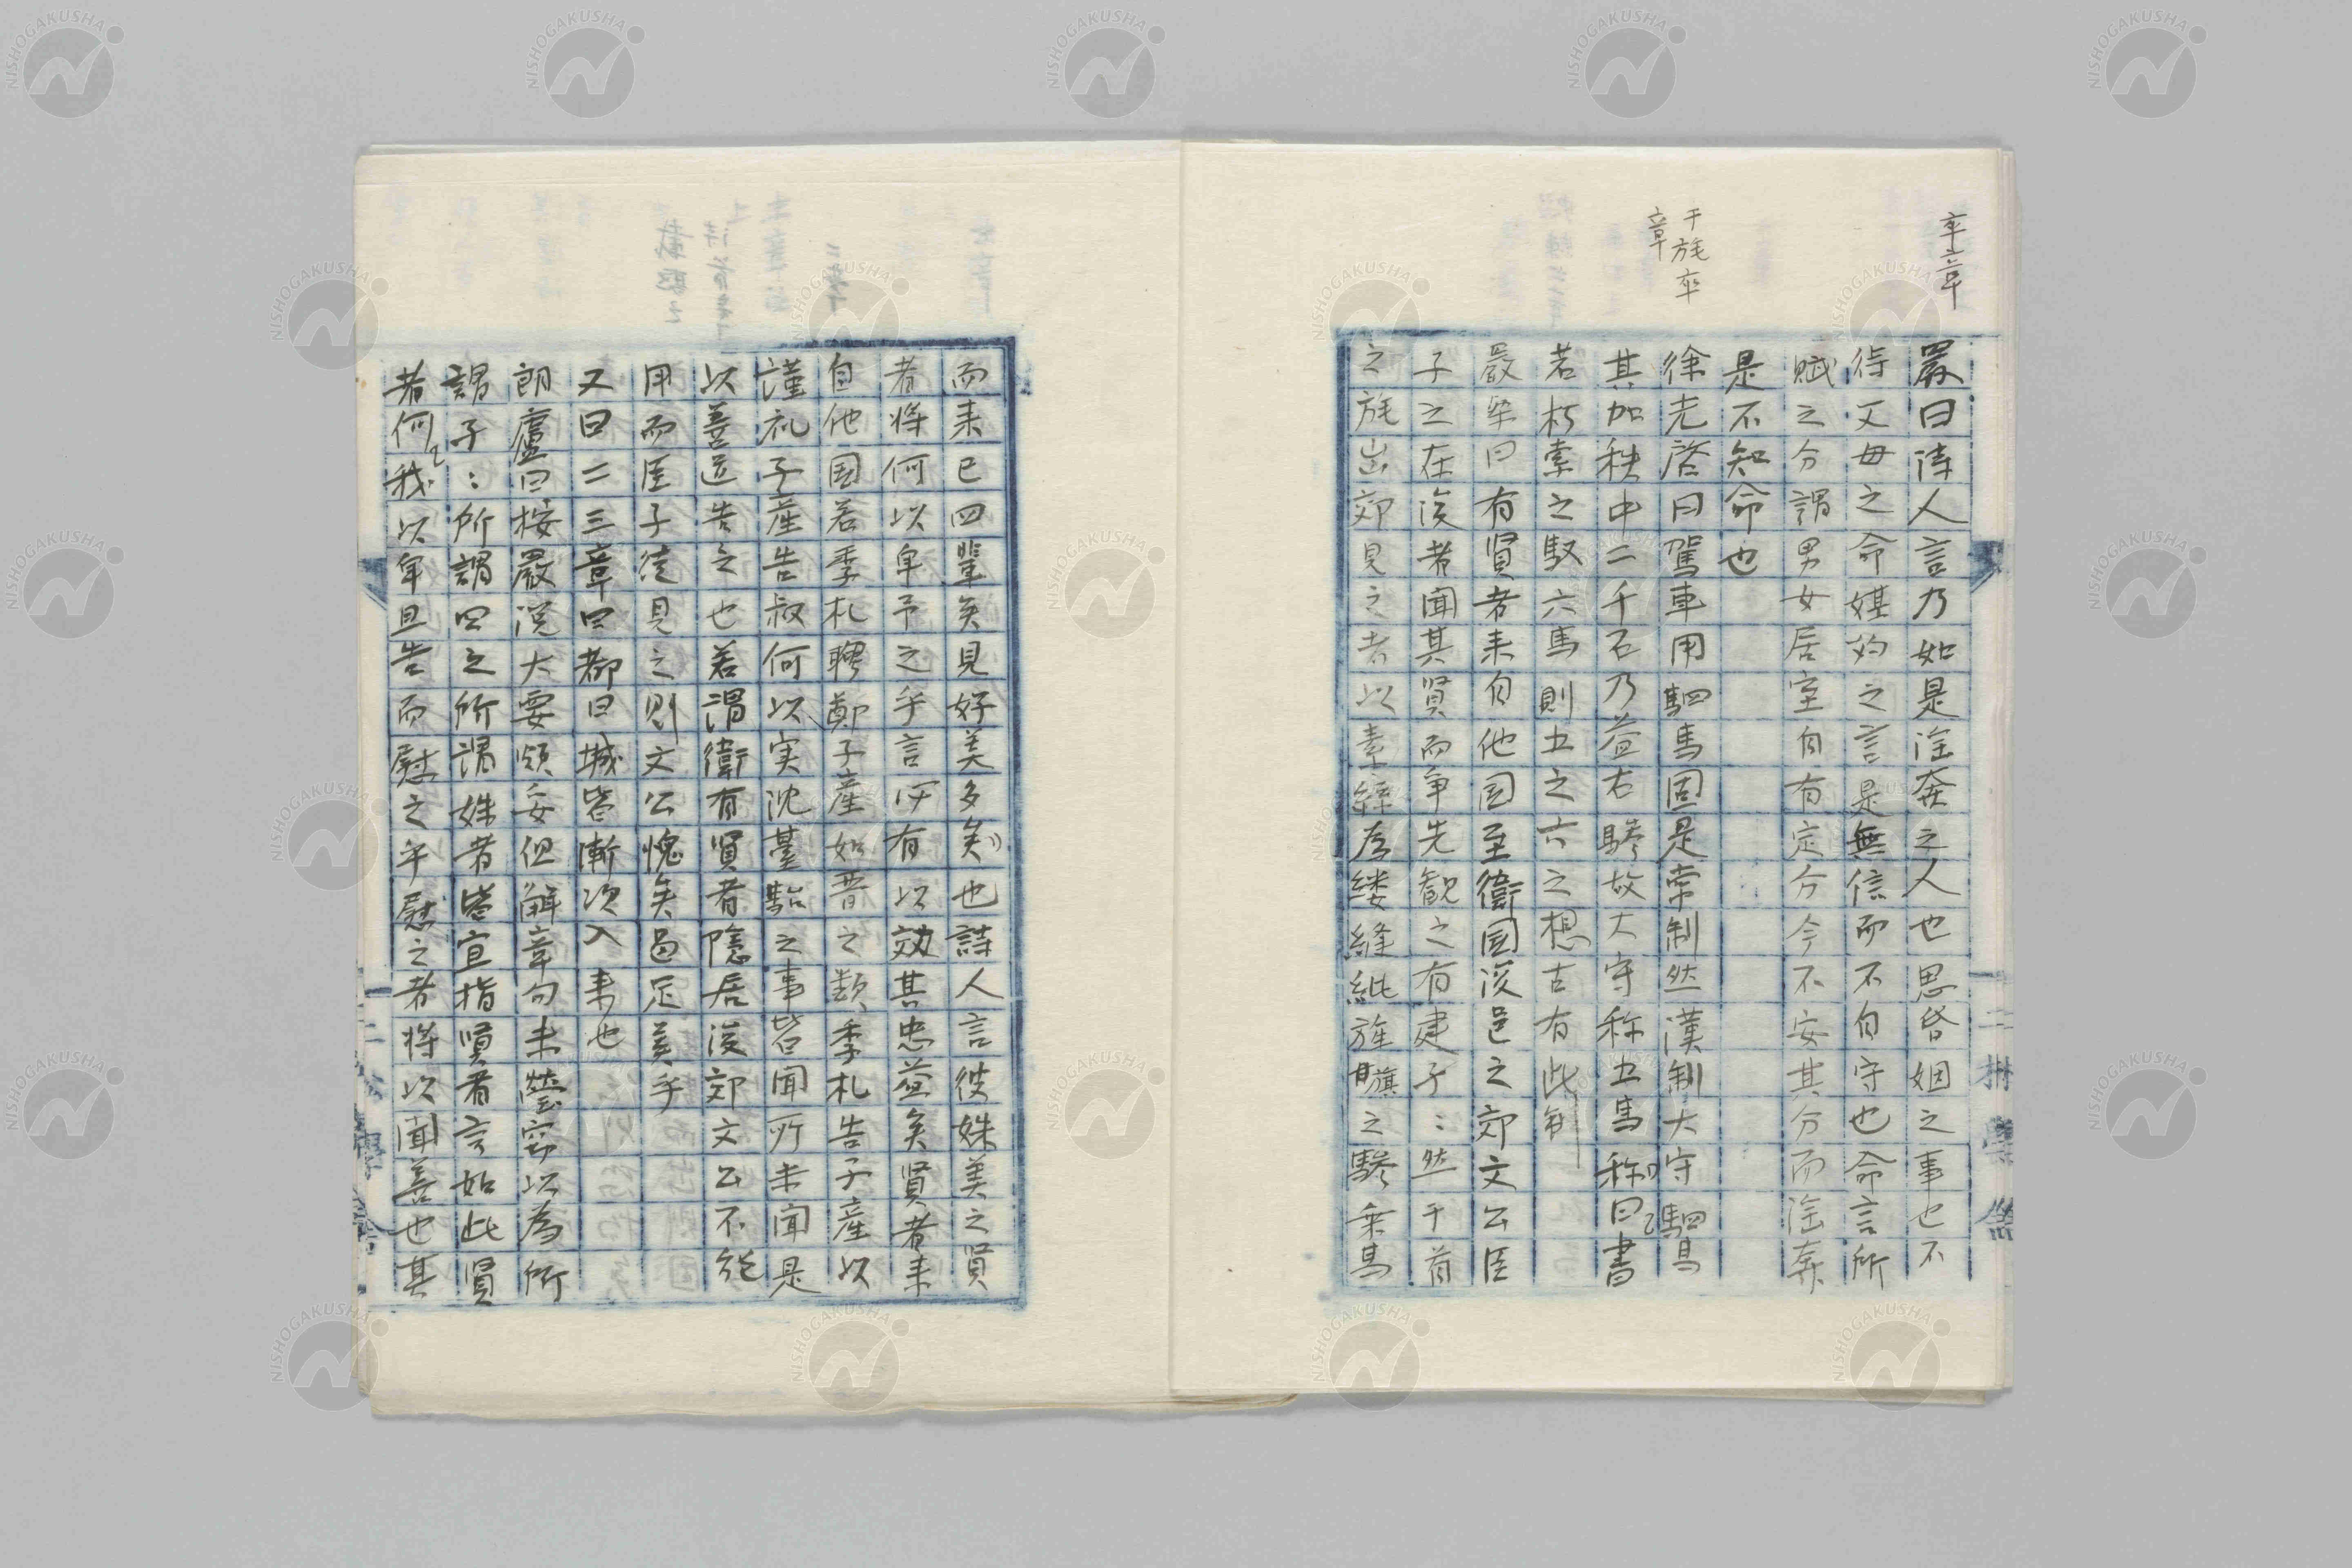 卒章
嚴曰詩人言乃如是淫奔之人也思昏姻之事也不
待父母之命媒妁之言是無信而不自守也命言所
賦之分謂男女居室自有定分今不安其分而淫奔
是不知命也
干旄卒
章
徐光啓曰駕車用駟馬固是常制然漢制大守駟馬
其加秩中二千石乃益右驂故大守称五馬称曰書
若朽索之馭六馬則五之六之想古有此制
嚴粲曰有賢者来自他国至衛国浚邑之郊文公臣
子之在浚者聞其賢而争先観之有建孑〻然干首
之旄出郊見之者以素絲為縷縫紕旌旗之驂乗馬
而来已四輩矣見好美多矣也詩人言彼姝美之賢
者将何以畀予之乎言所有以効其忠益矣賢者来
自他国若季札聘鄭子産如晋之類季札告子産以
謹礼子産告叔何以実沈臺駘之事皆聞所未聞是
以善道告之也若謂衛有賢者隠居浚郊文公不能
用而臣子徒見之則文公愧矣曷足美乎
又曰二三章曰都曰城皆漸次入来也
朗廬曰按嚴説大要頗妥但解章句未瑩窃以為所
謂孑〻所謂四之所謂姝者皆宜指賢者言如此賢
者何我以畀且告而慰之乎慰之者将以聞善也其
NISHOGAKUSHA